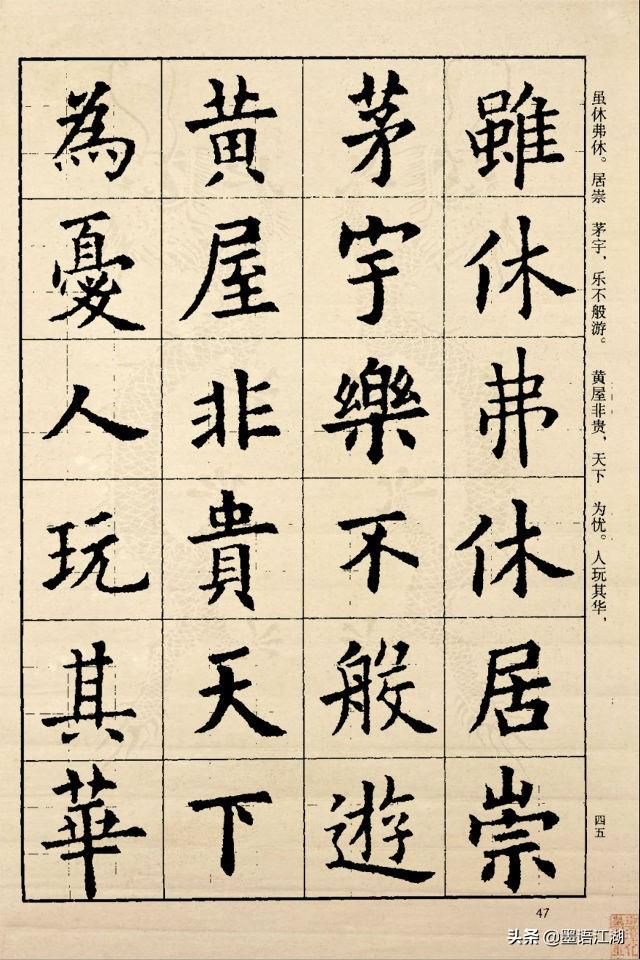 雖休弗休居崇
茅宇樂不般遊
黃屋非貴天下
為憂人玩其華
虽休弗休。居崇 茅宇，乐不般游。 黄屋非贵，天下 为忧。人玩其华，
四五
47
头条 @墨语江湖